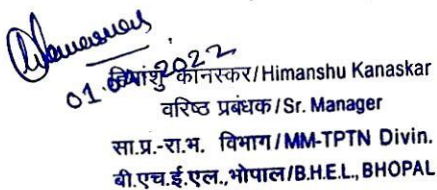 01.  2022
हिमांशु कानस्कर/Himanshu Kanaskar
वरिष्ठ प्रबंधक/Sr. Manager
सा.प्र.-रा.भ. विभाग/MM-TPTN Divin.
बी.एच.ई.एल.,भोपाल/B.H.E.L., BHOPAL